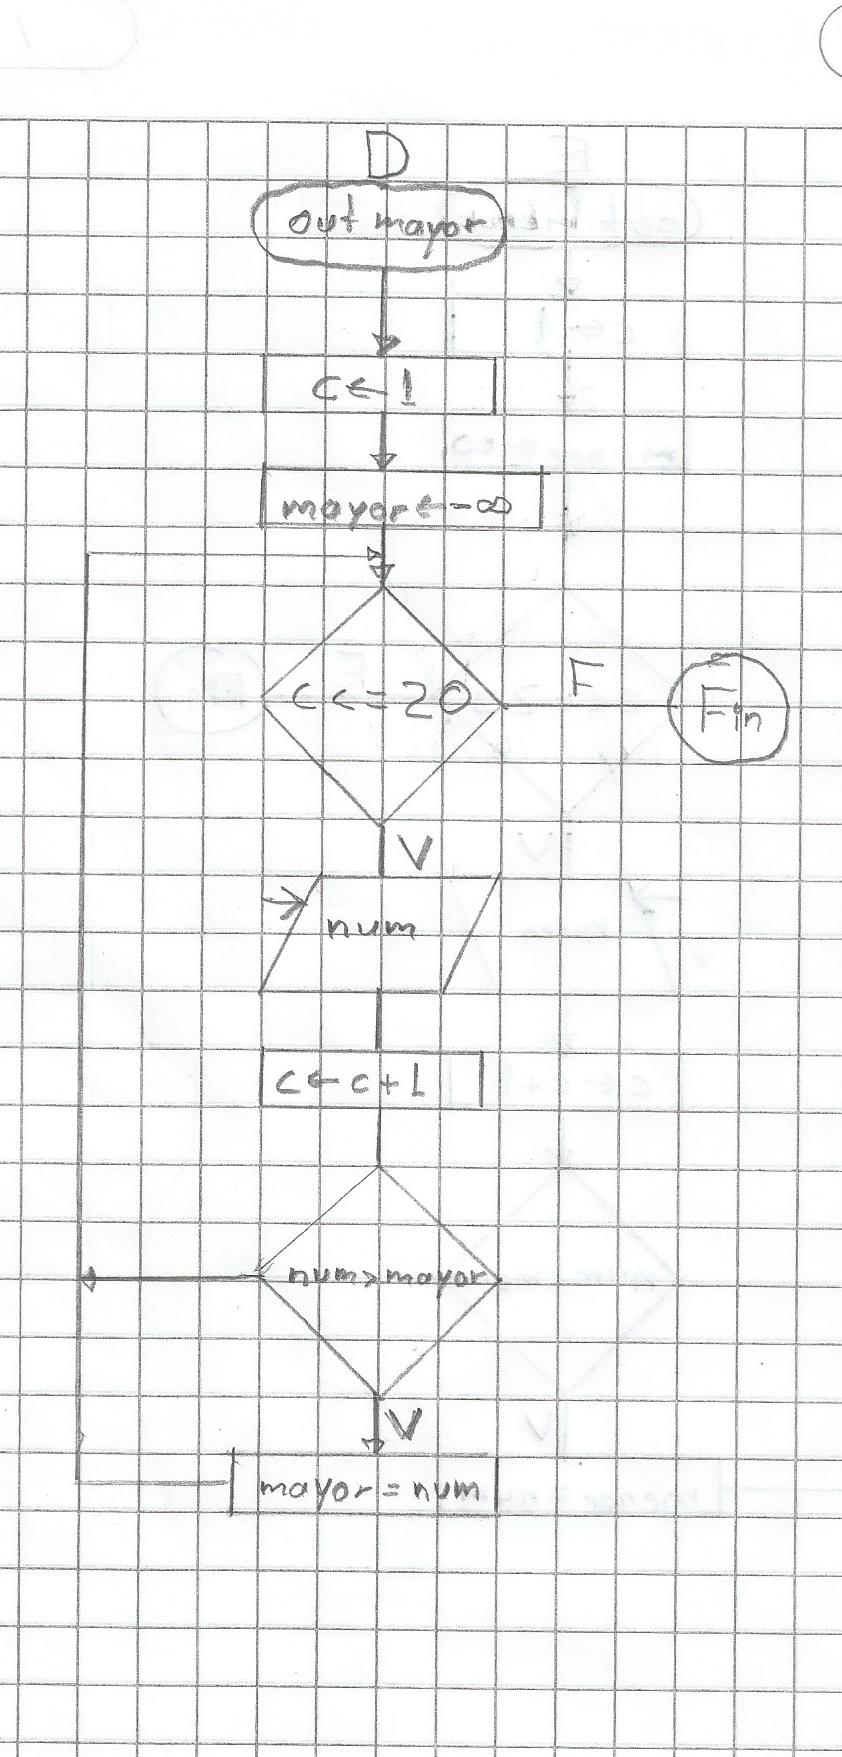 D
out mayor
c ← 1
mayor ← -∞
c <= 20
F
Fin
V
num
c ← c + 1
num > mayor
V
mayor = num